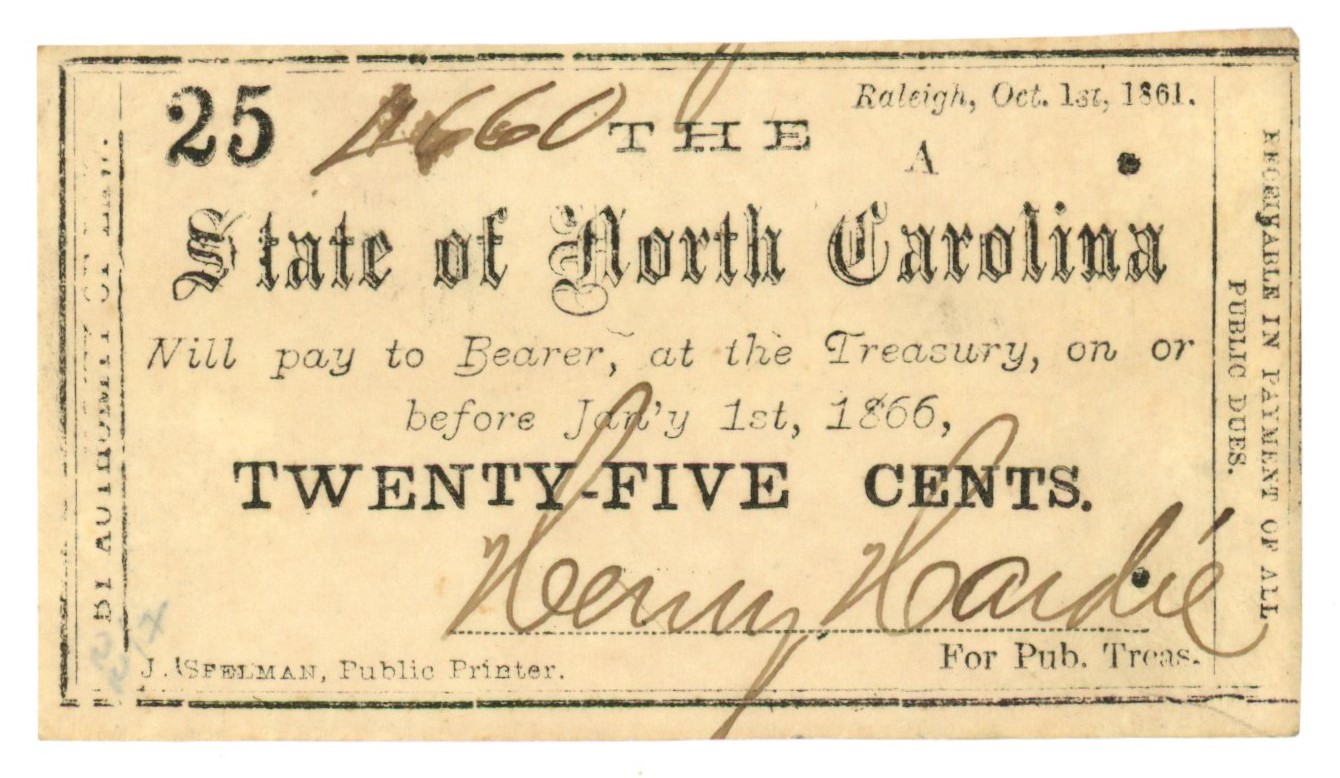 25 4660 THE
Raleigh, Oct. 1st, 1861.
A
State of North Carolina
Will pay to Bearer, at the Treasury, on or
before Jan'y 1st, 1866,
TWENTY-FIVE CENTS.
Henry Hardie
For Pub. Treas.
J. SPELMAN, Public Printer.
BY AUTHORITY OF LAW.
RECEIVABLE IN PAYMENT OF ALL
PUBLIC DUES.